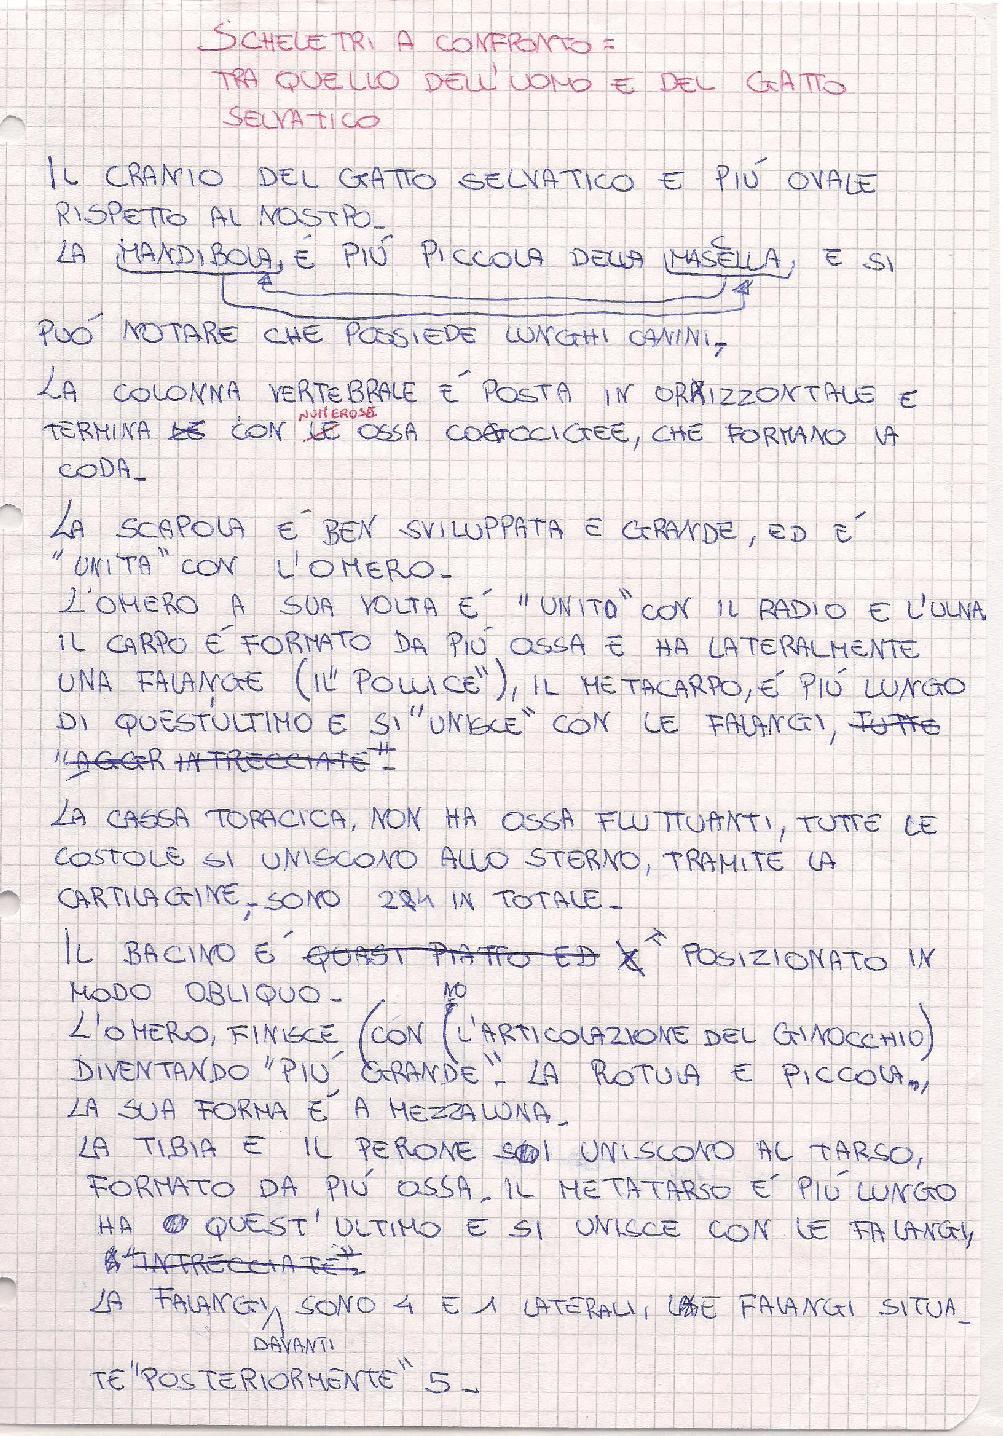 SCHELETRI A CONFRONTO =
TRA QUELLO DELL'UOMO E DEL GATTO
SELVATICO
IL CRANIO DEL GATTO SELVATICO E PIÚ OVALE
RISPETTO AL NOSTRO_
LA MANDIBOLA, É PIÚ PICCOLA DELLA MASCELLA, E SI
PUÓ NOTARE CHE POSSIEDE LUNGHI CANINI,
LA COLONNA VERTEBRALE É POSTA IN ORIZZONTALE E
NUMEROSE
TERMINA LE CON LE OSSA COCCIGEE, CHE FORMANO LA
CODA_
LA SCAPOLA É BEN SVILUPPATA E GRANDE, ED É
"UNITA" CON L'OMERO_
L'OMERO A SUA VOLTA É "UNITO" CON IL RADIO E L'ULNA
IL CARPO É FORMATO DA PIÚ OSSA E HA LATERALMENTE
UNA FALANGE (IL "POLLICE"), IL METACARPO, É PIÚ LUNGO
DI QUEST'ULTIMO E SI "UNISCE" CON LE FALANGI, TUTTE
"AGGR INTRECCIATE"_
LA CASSA TORACICA, NON HA OSSA FLUTTUANTI, TUTTE LE
COSTOLE SI UNISCONO ALLO STERNO, TRAMITE LA
CARTILAGINE, SONO 24 IN TOTALE_
IL BACINO É QUASI PIATTO ED POSIZIONATO IN
MODO OBLIQUO_
NO
L'OMERO, FINISCE (CON (L'ARTICOLAZIONE DEL GINOCCHIO)
DIVENTANDO "PIÚ GRANDE"_ LA ROTULA E PICCOLA,
LA SUA FORMA É A MEZZALUNA_
LA TIBIA E IL PERONE SI UNISCONO AL TARSO,
FORMATO DA PIÚ OSSA. IL METATARSO É PIÚ LUNGO
HA QUEST'ULTIMO E SI UNISCE CON LE FALANGI,
"INTRECCIATE"_
LA FALANGI, SONO 4 E 1 LATERALI, LE FALANGI SITUA_
DAVANTI
TE "POSTERIORMENTE" 5_